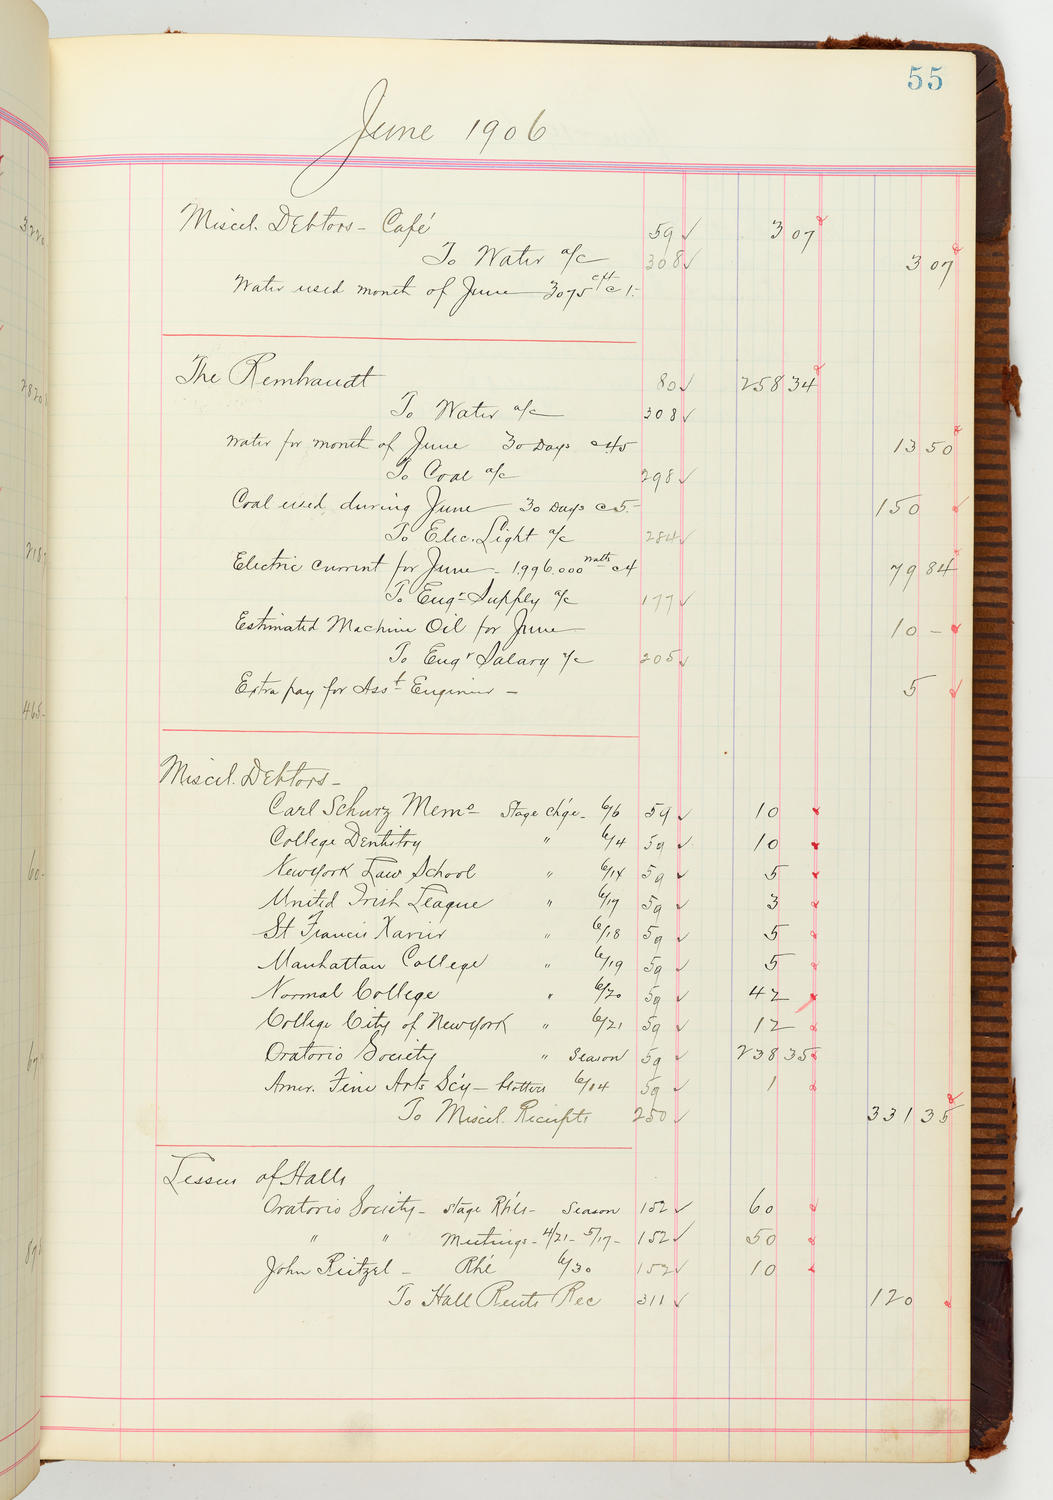 55
June 1906
Miscel. Debtors - Café 59 ✓ 3 07
To Water a/c 308 ✓ 3 07
Water used month of June 3075 cft @ 1.-
The Rembrandt 80 ✓ 258 34
To Water a/c 308 ✓
Water for month of June 30 Days @ 45 13 50
To Coal a/c 298 ✓
Coal used during June 30 Days @ 5.- 150
To Elec. Light a/c 284 ✓
Electric current for June - 1,996,000 watts @ 4 79 84
To Engr Supply a/c 177 ✓
Estimated Machine Oil for June 10 -
To Engr Salary a/c 205 ✓
Extra pay for Asst Engineer - 5
Miscel. Debtors -
Carl Schurz Memo Stage Ch'ge - 6/6 59 ✓ 10
College Dentistry " 6/4 59 ✓ 10
New York Law School " 6/14 59 ✓ 5
United Irish League " 6/17 59 ✓ 3
St Francis Xavier " 6/18 59 ✓ 5
Manhattan College " 6/19 59 ✓ 5
Normal College " 6/20 59 ✓ 42
College City of New York " 6/21 59 ✓ 12
Oratorio Society " Season 59 ✓ 238 35
Amer. Fine Arts Sc'y - blotters 6/04 59 ✓ 1
To Miscel. Receipts 250 ✓ 331 35
Lessees of Halls
Oratorio Society - Stage Rh'ls - Season 152 ✓ 60
" " Meetings - 4/21 - 5/17 - 152 ✓ 50
John Rietzel - Rh'l 6/30 152 ✓ 10
To Hall Rents Rec 311 ✓ 120